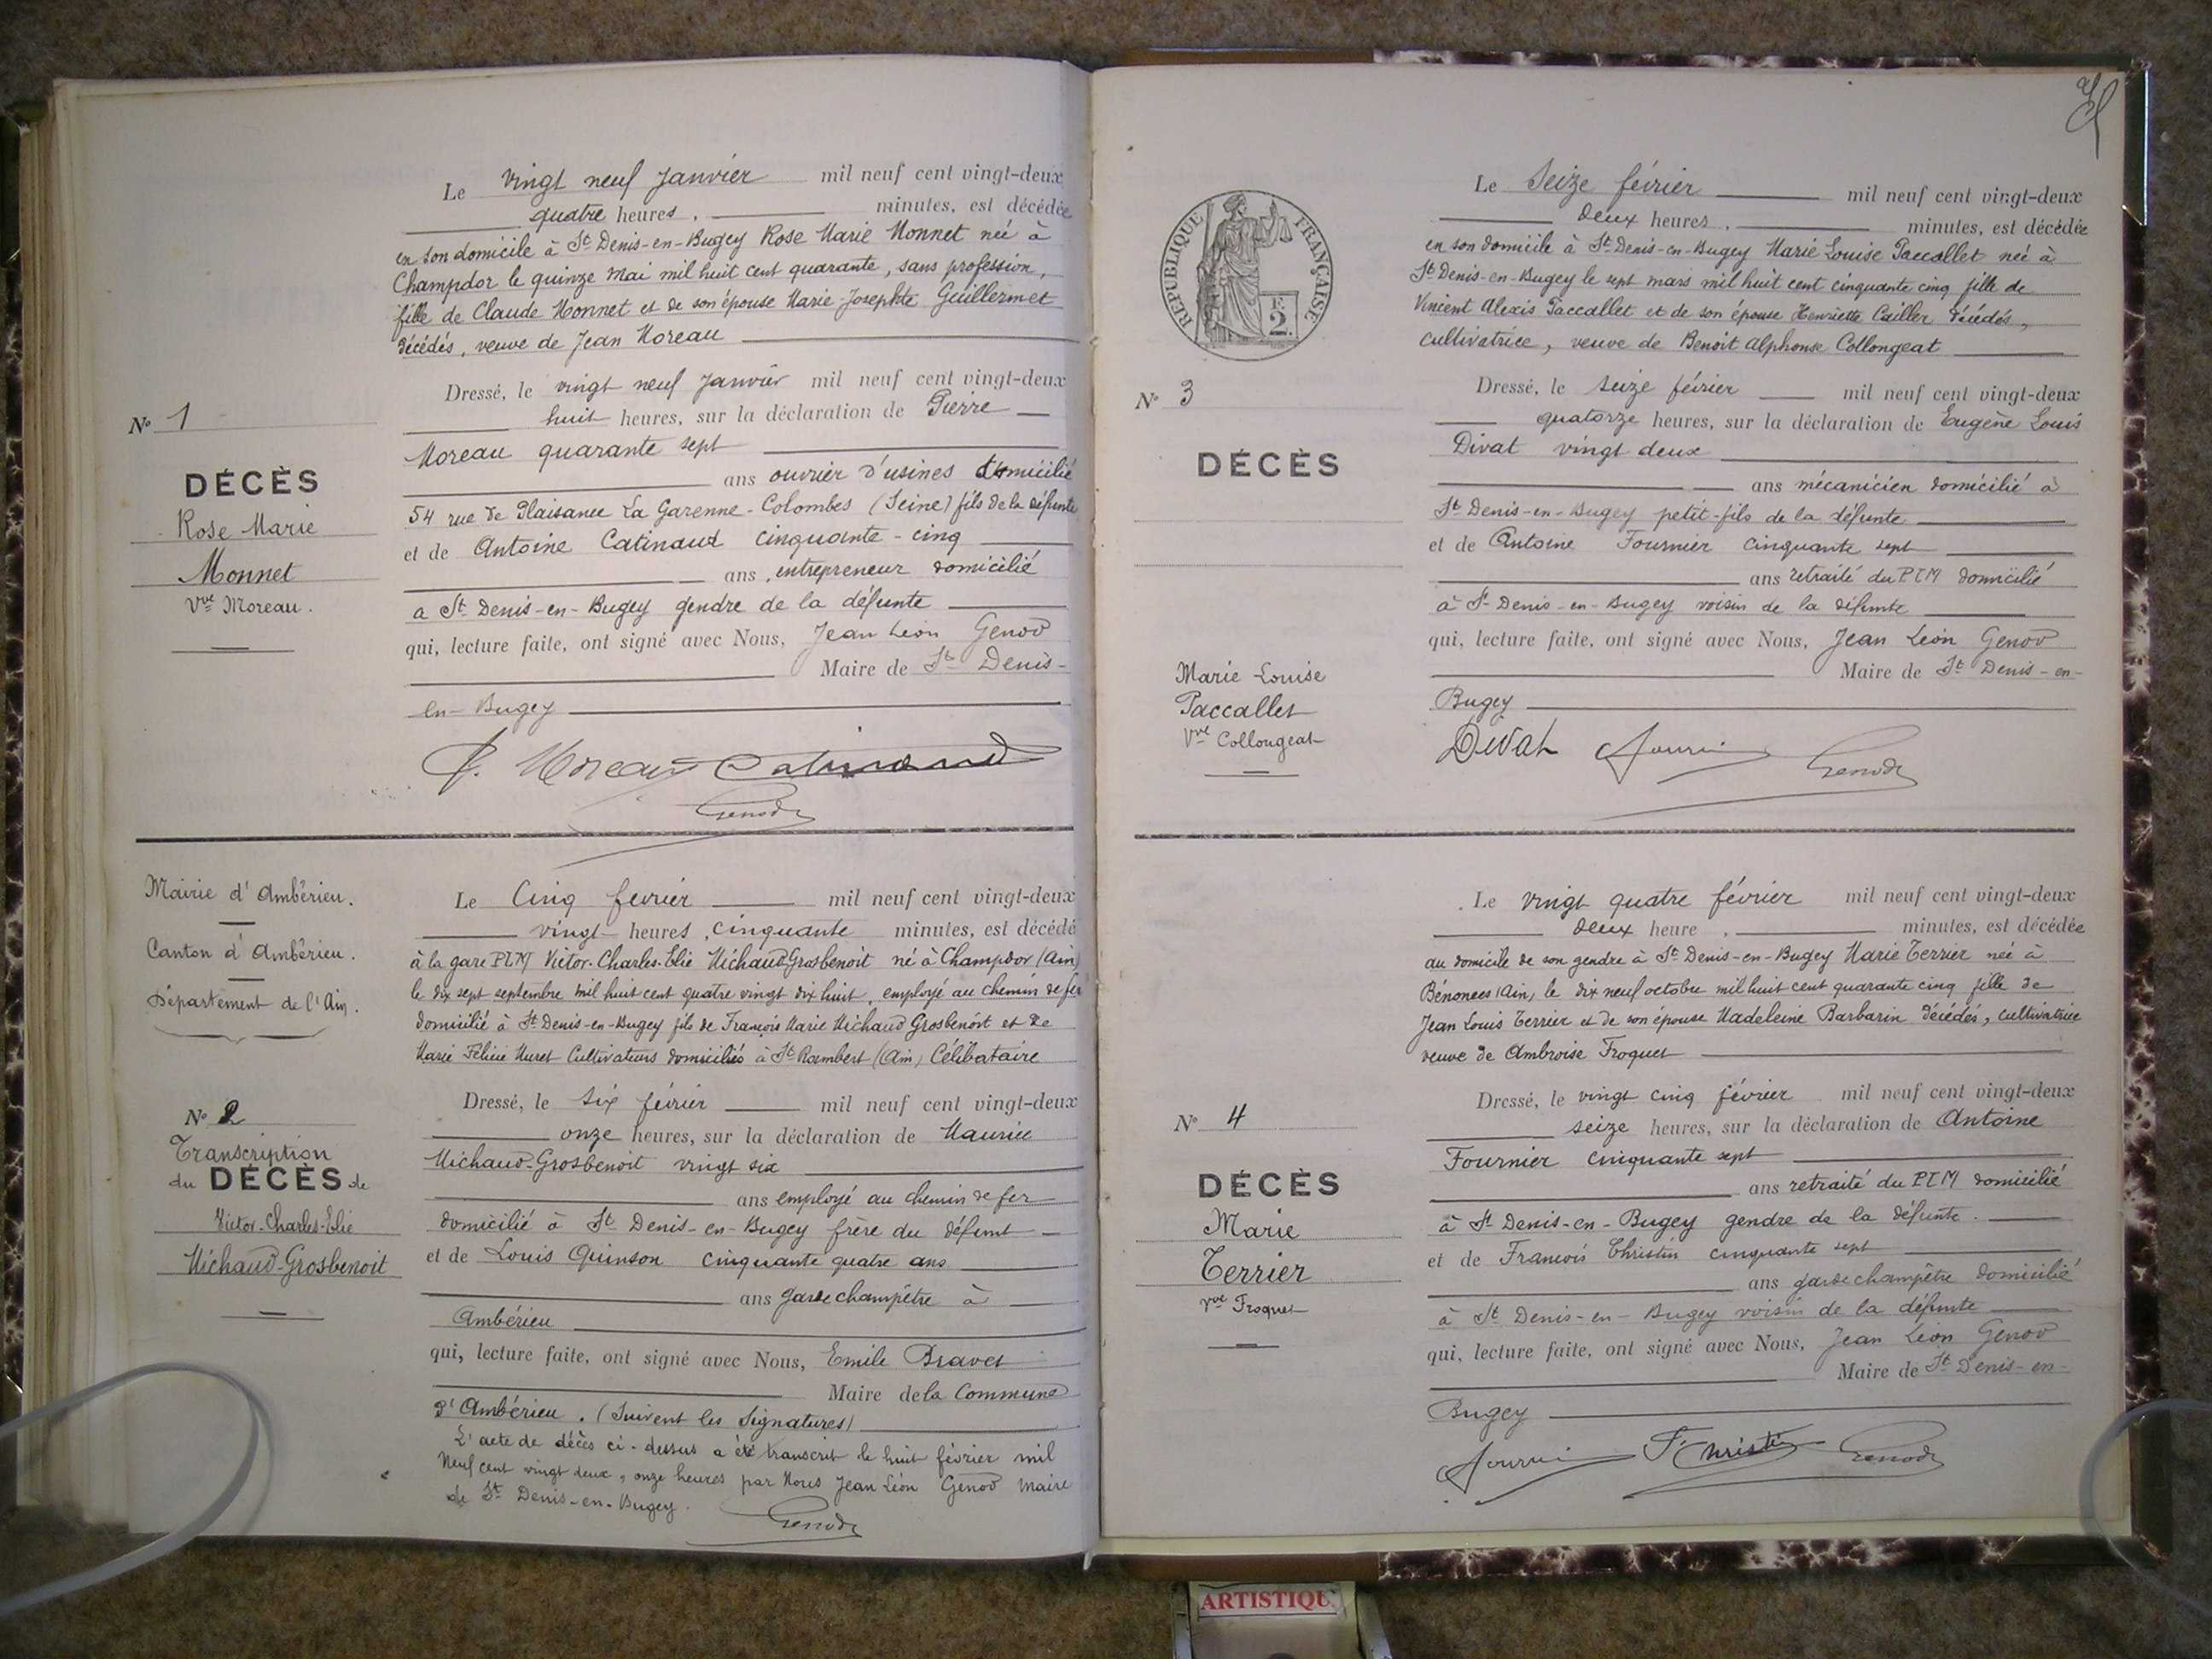 Le vingt neuf janvier mil neuf cent vingt-deux
quatre heures, minutes, est décédée
en son domicile à St Denis-en-Bugey Rose Marie Monnet née à
Champdor le quinze mai mil huit cent quarante, sans profession,
fille de Claude Monnet et de son épouse Marie-Josephte Guillermet
décédés, veuve de Jean Moreau
Dressé, le vingt neuf janvier mil neuf cent vingt-deux
huit heures, sur la déclaration de Pierre
Moreau quarante sept
ans ouvrier d'usines domicilié
54 rue de Plaisance La Garenne-Colombes (Seine) fils de la défunte
et de Antoine Catinaud cinquante-cinq
ans, entrepreneur domicilié
a St Denis-en-Bugey gendre de la défunte
qui, lecture faite, ont signé avec Nous, Jean Léon Genod
Maire de St Denis-
en-Bugey
P. Moreau Catinaud
Genod
No 1
DÉCÈS
Rose Marie
Monnet
Vve Moreau.
Mairie d'Ambérieu.
Canton d'Ambérieu.
Département de l'Ain.
No 2
Transcription
du DÉCÈS de
Victor-Charles-Elie
Michaud-Grosbenoit
Le Cinq fevrier mil neuf cent vingt-deux
vingt heures, cinquante minutes, est décédé
à la gare PLM Victor-Charles-Elie Michaud-Grosbenoit né à Champdor (Ain)
le dix sept septembre mil huit cent quatre vingt dix huit, employé au chemin de fer
domicilié à St Denis-en-Bugey fils de François Marie Michaud Grosbenoit et de
Marie Félicie Muret Cultivateurs domiciliés à St Rambert (Ain) Célibataire
Dressé, le six février mil neuf cent vingt-deux
onze heures, sur la déclaration de Maurice
Michaud-Grosbenoit vingt six
ans employé au chemin de fer
domicilié à St Denis-en-Bugey frère du défunt
et de Louis Quinson cinquante quatre ans
ans garde champêtre à
Ambérieu
qui, lecture faite, ont signé avec Nous, Emile Bravet
Maire de la Commune
d'Ambérieu. (Suivent les Signatures)
L'acte de décès ci-dessus a été transcrit le huit février mil
neuf cent vingt deux, onze heures par Nous Jean Léon Genod Maire
de St Denis-en-Bugey.
Genod
RÉPUBLIQUE FRANÇAISE
F.
2.
No 3
DÉCÈS
Marie Louise
Paccallet
Vve Collongeat
Le Seize février mil neuf cent vingt-deux
deux heures, minutes, est décédée
en son domicile à St Denis-en-Bugey Marie Louise Paccallet née à
St Denis-en-Bugey le sept mars mil huit cent cinquante cinq fille de
Vincent Alexis Paccallet et de son épouse Henriette Cailler décédés,
cultivatrice, veuve de Benoit Alphonse Collongeat
Dressé, le seize février mil neuf cent vingt-deux
quatorze heures, sur la déclaration de Eugène Louis
Divat vingt deux
ans mécanicien domicilié à
St Denis-en-Bugey petit-fils de la défunte
et de Antoine Fournier cinquante sept
ans retraité du PLM domicilié
à St Denis-en-Bugey voisin de la défunte
qui, lecture faite, ont signé avec Nous, Jean Léon Genod
Maire de St Denis-en-
Bugey
Divat Fournier Genod
No 4
DÉCÈS
Marie
Terrier
Vve Froquet
Le vingt quatre février mil neuf cent vingt-deux
deux heure, minutes, est décédée
au domicile de son gendre à St Denis-en-Bugey Marie Terrier née à
Bénonces (Ain) le dix neuf octobre mil huit cent quarante cinq fille de
Jean Louis Terrier et de son épouse Madeleine Barbarin décédés, cultivatrice
veuve de Ambroise Froquet
Dressé, le vingt cinq février mil neuf cent vingt-deux
seize heures, sur la déclaration de Antoine
Fournier cinquante sept
ans retraité du PLM domicilié
à St Denis-en-Bugey gendre de la défunte.
et de François Christin cinquante sept
ans garde champêtre domicilié
à St Denis-en-Bugey voisin de la défunte
qui, lecture faite, ont signé avec Nous, Jean Léon Genod
Maire de St Denis-en-
Bugey
Fournier F. Christin Genod
ARTISTIQU